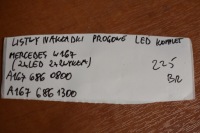 LISTWY NAKŁADKI PROGOWE LED KOMPLET
MERCEDES W167
(2xLED 2xZWYKŁA)
A167 686 0800
A167 686 1300
225
BR